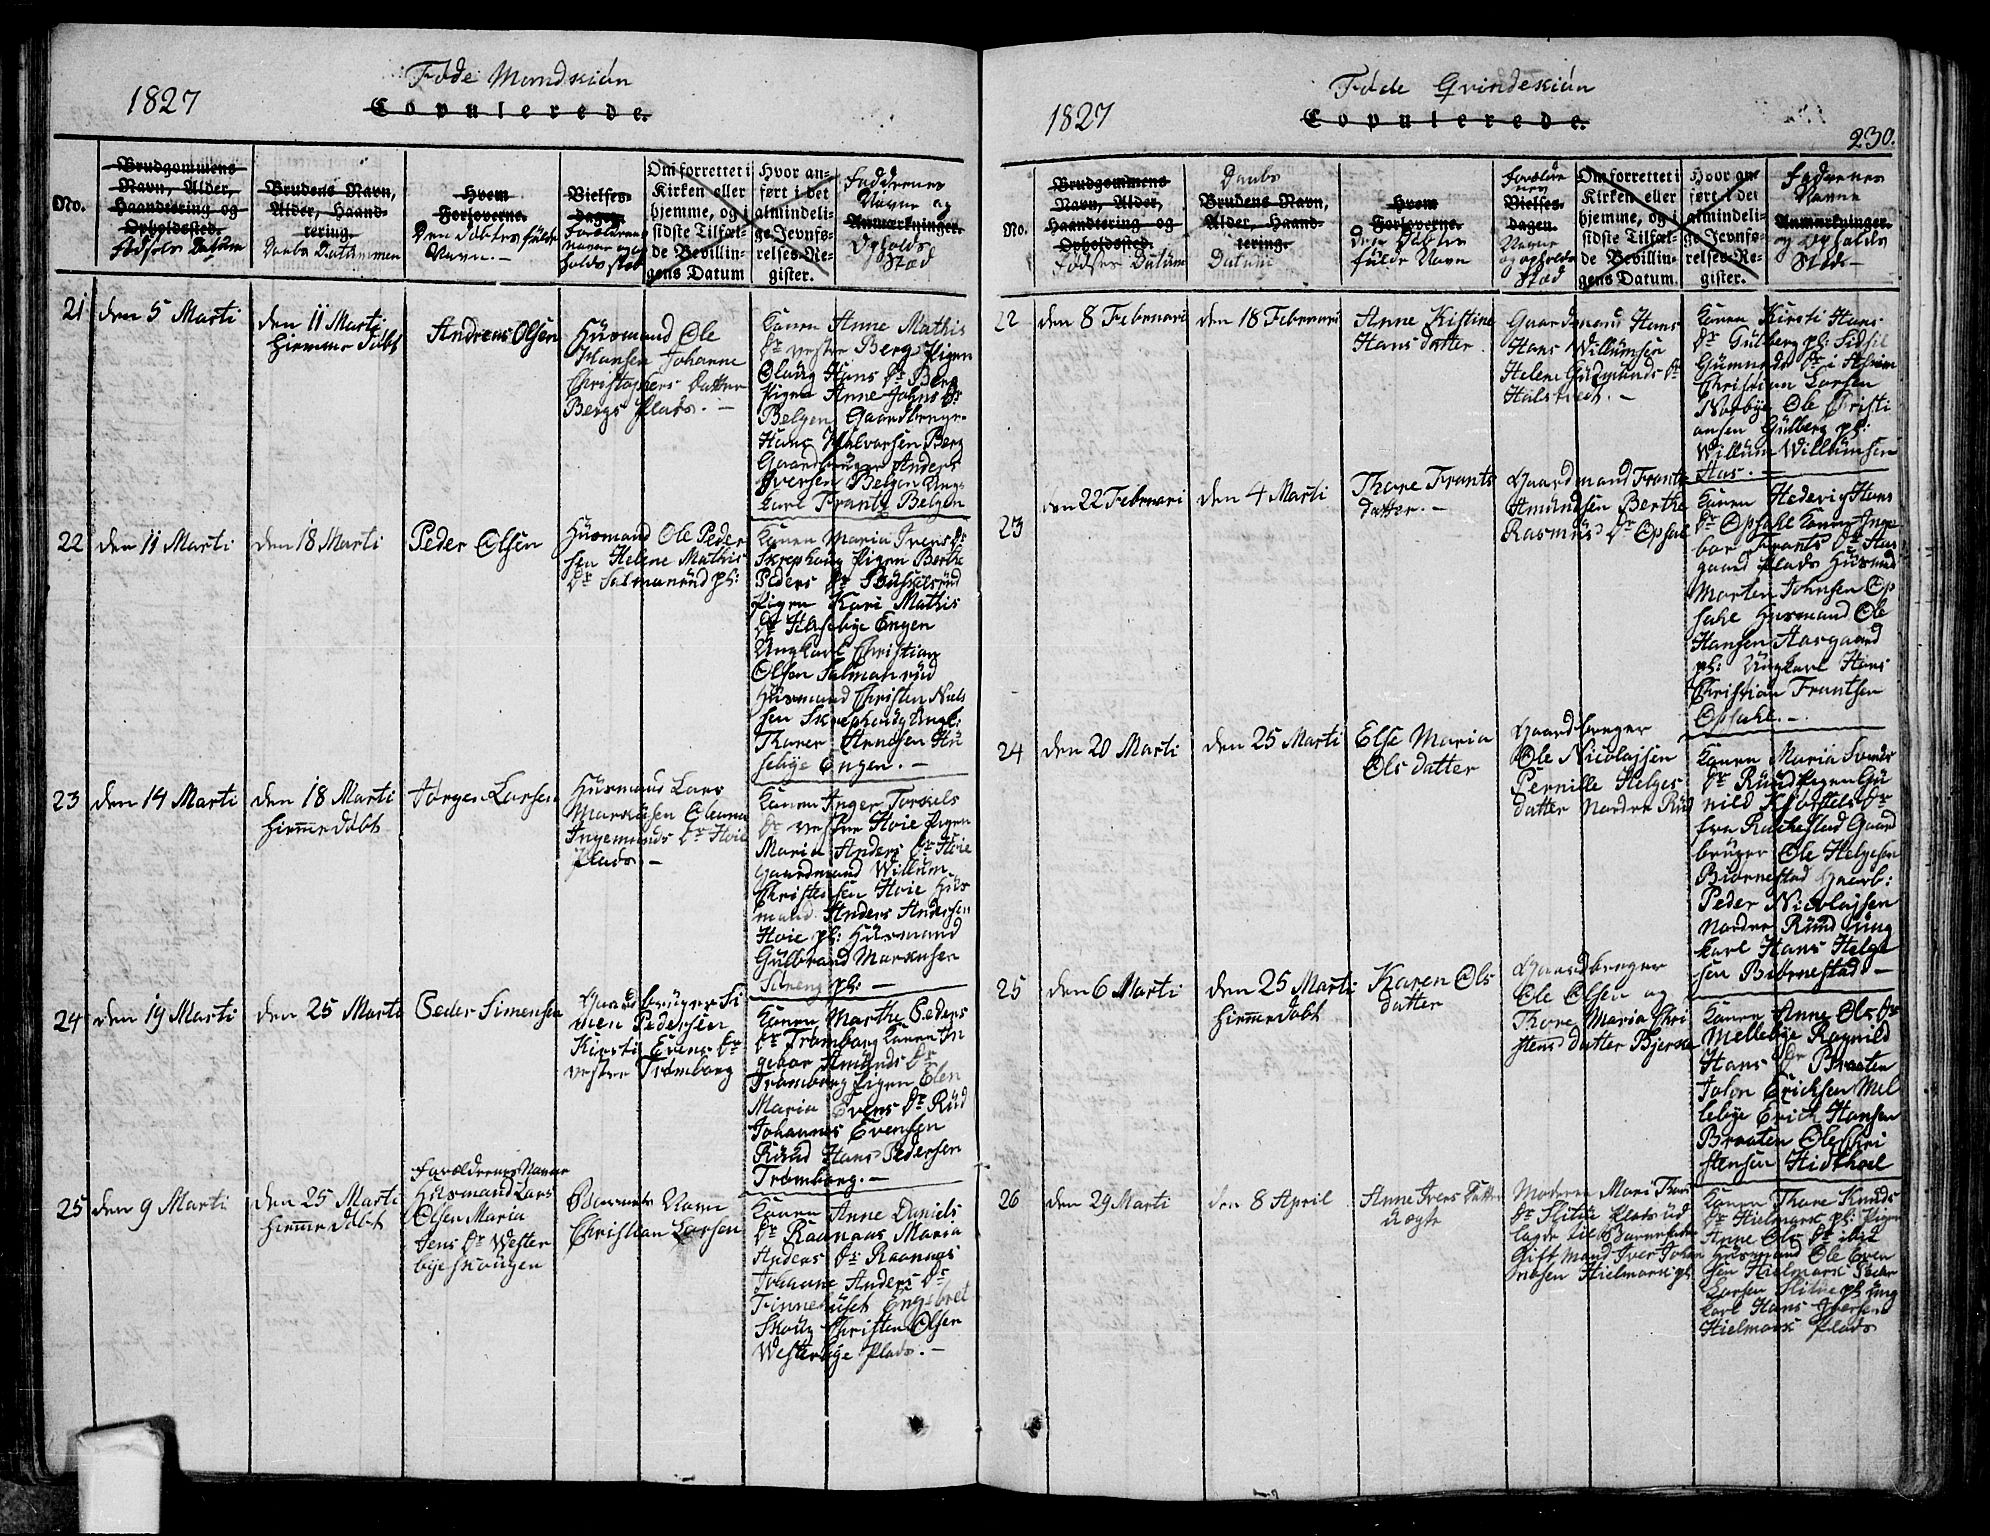 1827
Føde Mandskiøn
Copulerede.
No.
Brudgommens
Navn, Alder,
Haandtering og
Opholdssted.
Fødsels Datum
Brudens Navn,
Alder, Haand-
tering.
Daabs Datummen
Hvem
Forloverne.
Den døbtes fulde
Navn. -
Vielses-
dagen.
Forældrenes
Navne og op
holds sted
Om forrettet i
Kirken eller
hjemme, og i
sidste Tilfæl-
de Bevillin-
gens Datum
Hvor an-
ført i det
almindeli-
ge Jevnfø-
relses-Re-
gister.
Faddernes
Navne og
Anmærkninger.
Opholds
Stæd
21
den 5 Marti
den 11 Marti
Hiemme Døbt
Andreas Olsen
Huusmand Ole
Hansen Johanne
Christophers Datter
Bergs Plads. -
Konen Anne Mathis
Dr vestre Berg Pigen
Olaug Hans Dr Berg
Pigen Anne Johns Dr
Belgen Gaardbruger
Hans Halvorsen Berg
Gaardbruger Anders
Iversen Belgen Ung-
karl Frantz Belgen
22
den 11 Marti
den 18 Marti
Peder Olsen
Huusmand Ole Peder
sen Helene Mathis
Dr Salmanrud pl:
Konen Maria Ivers Dr
Skrephoug Pigen Berthe
Peders Dr
Pigen Kari Mathis
Dr Huseby Engen
Ungkarl Christian
Olsen Salmanrud
Huusmand Christen Niel
sen Skrephoug Ungk:
Thorer Arnesen Hu
sebye Engen. -
23
den 14 Marti
den 18 Marti
Hiemme Døbt
Jørgen Larsen
Huusmand Lars
Marcusen Oleanna
Ingemunds Dr Hoie
Plads -
Konen Anger Torkels
Dr vestre Hoie Pigen
Maria Anders Dr Hoie
Gaardmand Willum
Christensen Hoie Huus
mand Anders Andersen
Hoie pl: Huusmand
Gulbrand Marcusen
pl: -
24
den 19 Marti
den 25 Marti
Peder Simensen
Gaardbruger Si
men Pedersen
Kirsti Evens Dr
vestre Trømborg
Konen Marthe Peders
Dr Trømborg Konen In
gebor Amunds Dr
Trømborg Pigen Elen
Maria Evens Dr Rud
Johannes Evensen
Ruud Hans Pedersen
Trømborg. -
25
den 9 Marti
den 25 Marti
Hiemme døbt
Forældrenes Navne
Huusmand Lars
Olsen Maria
Jens Dr Wester
bye skougen
Barnets Navn
Christian Larsen
Konen Anne Daniels
Dr Raanaas Maria
Anders Dr Raanaas
Johanne Anders Dr
Finnehuset Engebret
Skoug Christen Olsen
Westerbye Plads. -
1827
Føde Qvindekiøn
Copulerede.
230.
No.
Brudgommens
Navn, Alder,
Haandtering og
Opholdssted.
Fødsels Datum
Daabs
Brudens Navn,
Alder, Haand-
tering.
Datum
Hvem
Forloverne.
den Døbtes
fulde Navn
Forældre
nes
Vielses-
dagen.
Navne
og opholds
Stæd
Om forrettet i
Kirken eller
hjemme, og i
sidste Tilfæl-
de Bevillin-
gens Datum.
Hvor an-
ført i det
almindeli-
ge Jevnfø-
relses-Re-
gister.
Fadernes
Navne
Anmærkninger.
og Opholds
Stæd -
22
den 8 Februari
den 18 Februari
Anne Kistine
Hans Datter
Gaardmand Hans
Hans Willumsen
Helene Gudmunds Dr
Halstvedt. -
Konen Kirsti Hans
Dr Gulberg pl: Sidsil
Gumunds Dr i Askim
Christian Larsen
Norbye Ole Christi
ansen Gulberg pl:
Willum Willumsen
Aas. -
23
den 22 Februari
den 4 Marti
Thore Frants
datter. -
Gaardmand Frants
Amundsen Berthe
Rasmus Dr Opsal
Konen Hedevig Hans
Dr Opsahl Konen Inge
bor Frants Dr Aas
gaard Plads Huusmand
Morten Johnsen Op
sahl Huusmand Ole
Hansen Aasgaard
pl: Ungkarl Hans
Christian Frantsen
Opsahl. -
24
den 20 Marti
den 25 Marti
Else Maria
Ols datter
Gaardbruger
Ole Nicolajsen
Pernille Helges
datter Nordre Rud
Konen Maria Svends
Dr Ruud Pigen Gu
nild Kjostels Dr
fra Rachestad Gaard
bruger Ole Helgesen
Biørnestad Gaarb:
Peder Nicolajsen
Nordre Ruud Ung
karl Hans Helge
sen Biørnestad -
25
den 6 Marti
den 25 Marti
Hiemme Døbt
Karen Ols
datter
Gaardbruger
Ole Olsen og
Thore Maria Chri
stens datter Bjerke
Konen Anne Ols Dr
Mellebye Ragnild
Hans Dr Braaten
John Erichsen Mel
lebye Erich Hansen
Braaten Ole Chri
stensen
26
den 29 Marti
den 8 April
Anne Ivers Datter
Uægte
Moderen Mari Thors
Dr Slitu Plads ud
lagde til Barnefader
Gift Mand Iver Johan
nesen Hielmark pl
Konen Thore Knuds
Dr Hielmark pl: Pigen
Anne Ols Dr ibid
Huusmand Ole Even
sen Hielmark Peder
Larsen Slitue pl Ung
karl Hans Iversen
Hielmark Plads